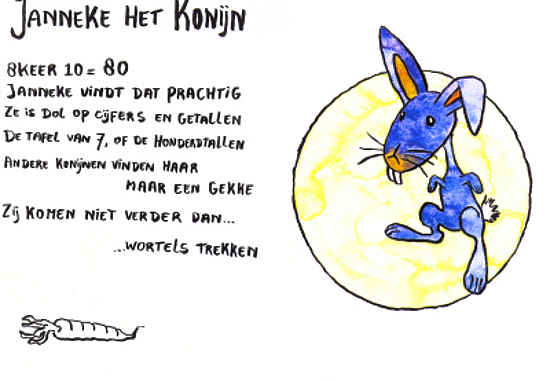 Janneke het Konijn
8keer 10 = 80
Janneke vindt dat prachtig
Ze is dol op cijfers en getallen
De tafel van 7, of de Honderdtallen
Andere konijnen vinden haar
maar een gekke
Zij komen niet verder dan...
...wortels trekken